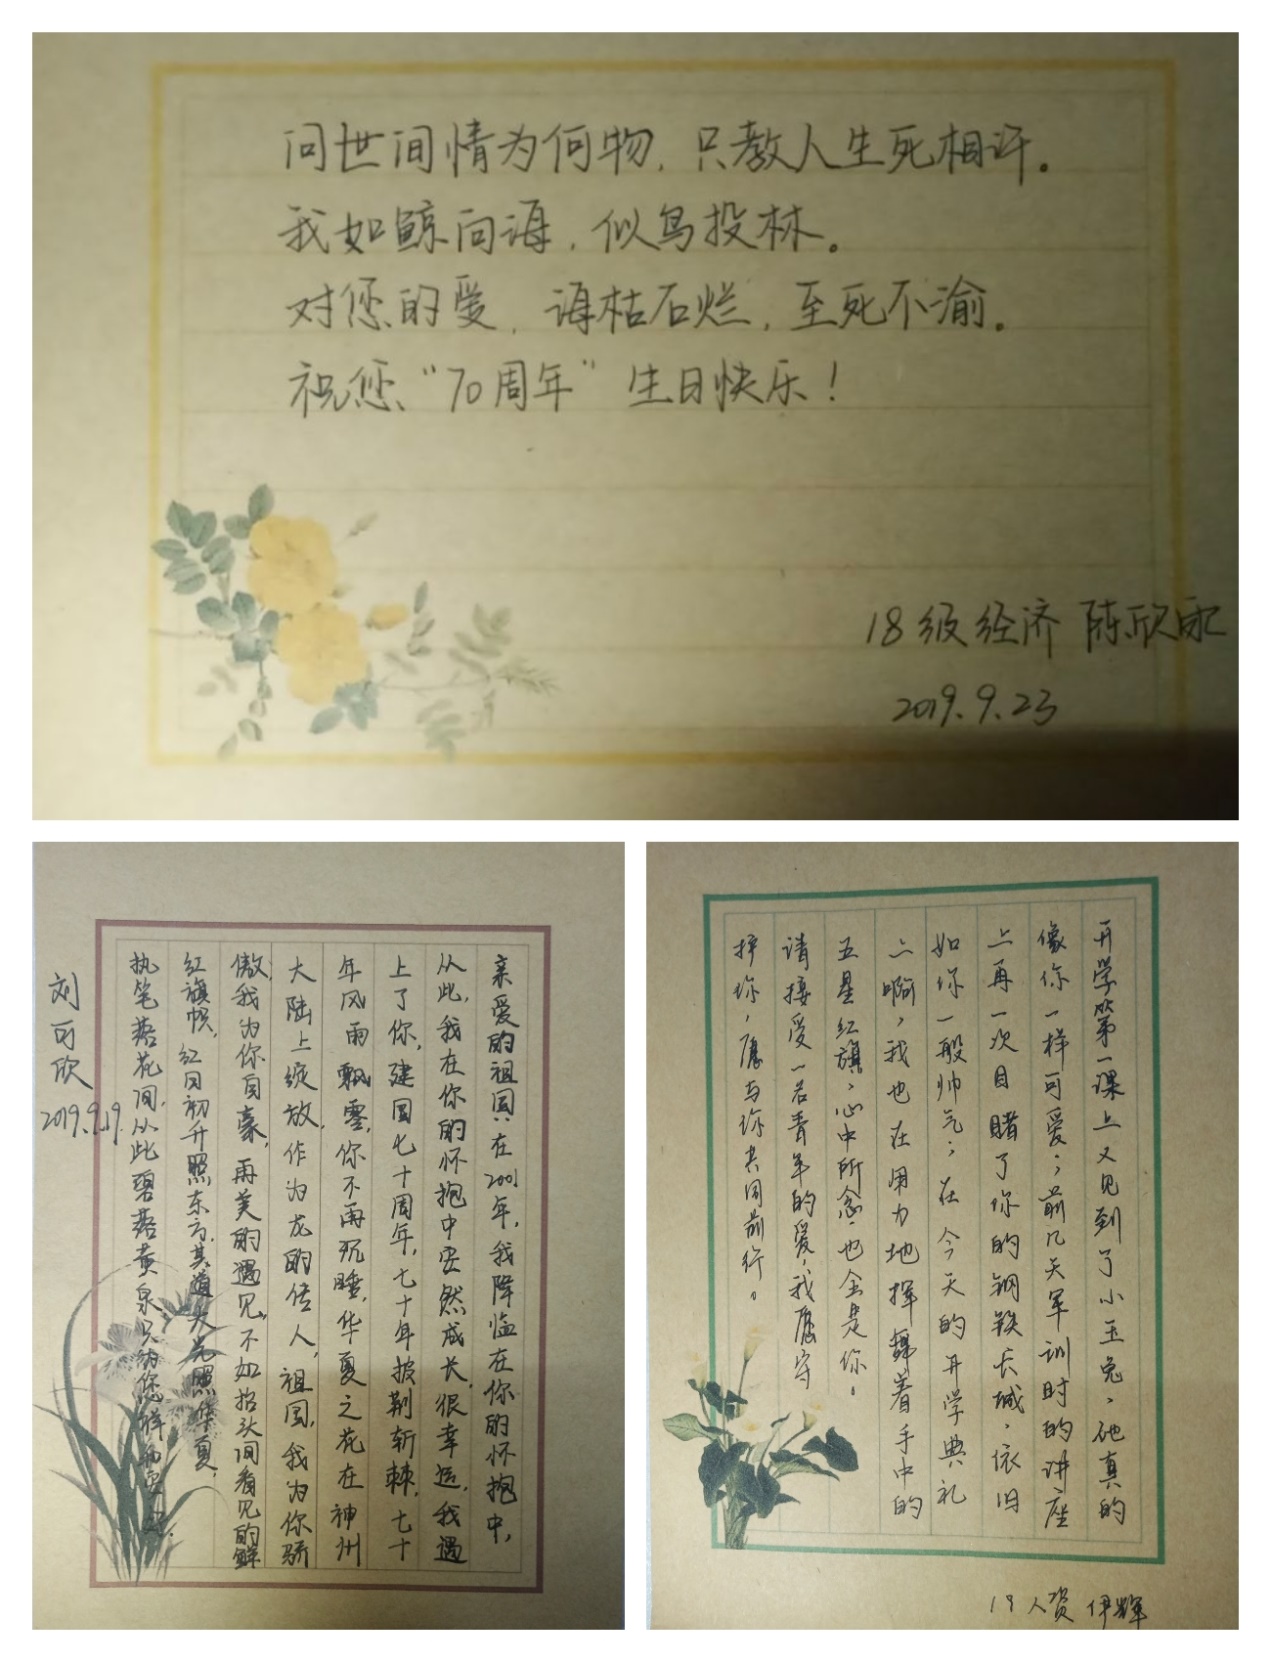 问世间情为何物，只教人生死相许。
我如鲸向海，似鸟投林。
对您的爱，海枯石烂，至死不渝。
祝您“70周年”生日快乐！
18级经济 陈欣
2019.9.23
亲爱的祖国：在2001年，我降临在你的怀抱中，
从此，我在你的怀抱中安然成长，很幸运，我遇
上了你，建国七十周年，七十年披荆斩棘，七十
年风雨飘零，你不再沉睡，华夏之花在神州
大陆上绽放，作为龙的传人，祖国，我为你骄
傲，我为你自豪，再美的遇见，不如抬头间看见的鲜
红旗帜，红日初升照东方，其道大光照华夏，
执笔落花间，从此碧落黄泉，只为您
刘可欣
2019.9.19
开学第一课上又见到了小玉兔，他真的
像你一样可爱；前几天军训时的讲座
上再一次目睹了你的钢铁长城，依旧
如你一般帅气；在今天的开学典礼
上啊，我也在用力地挥舞着手中的
五星红旗，心中所念，也全是你。
请接受一名青年的爱，我愿守
护你，愿与你共同前行。
19人资 伊辉